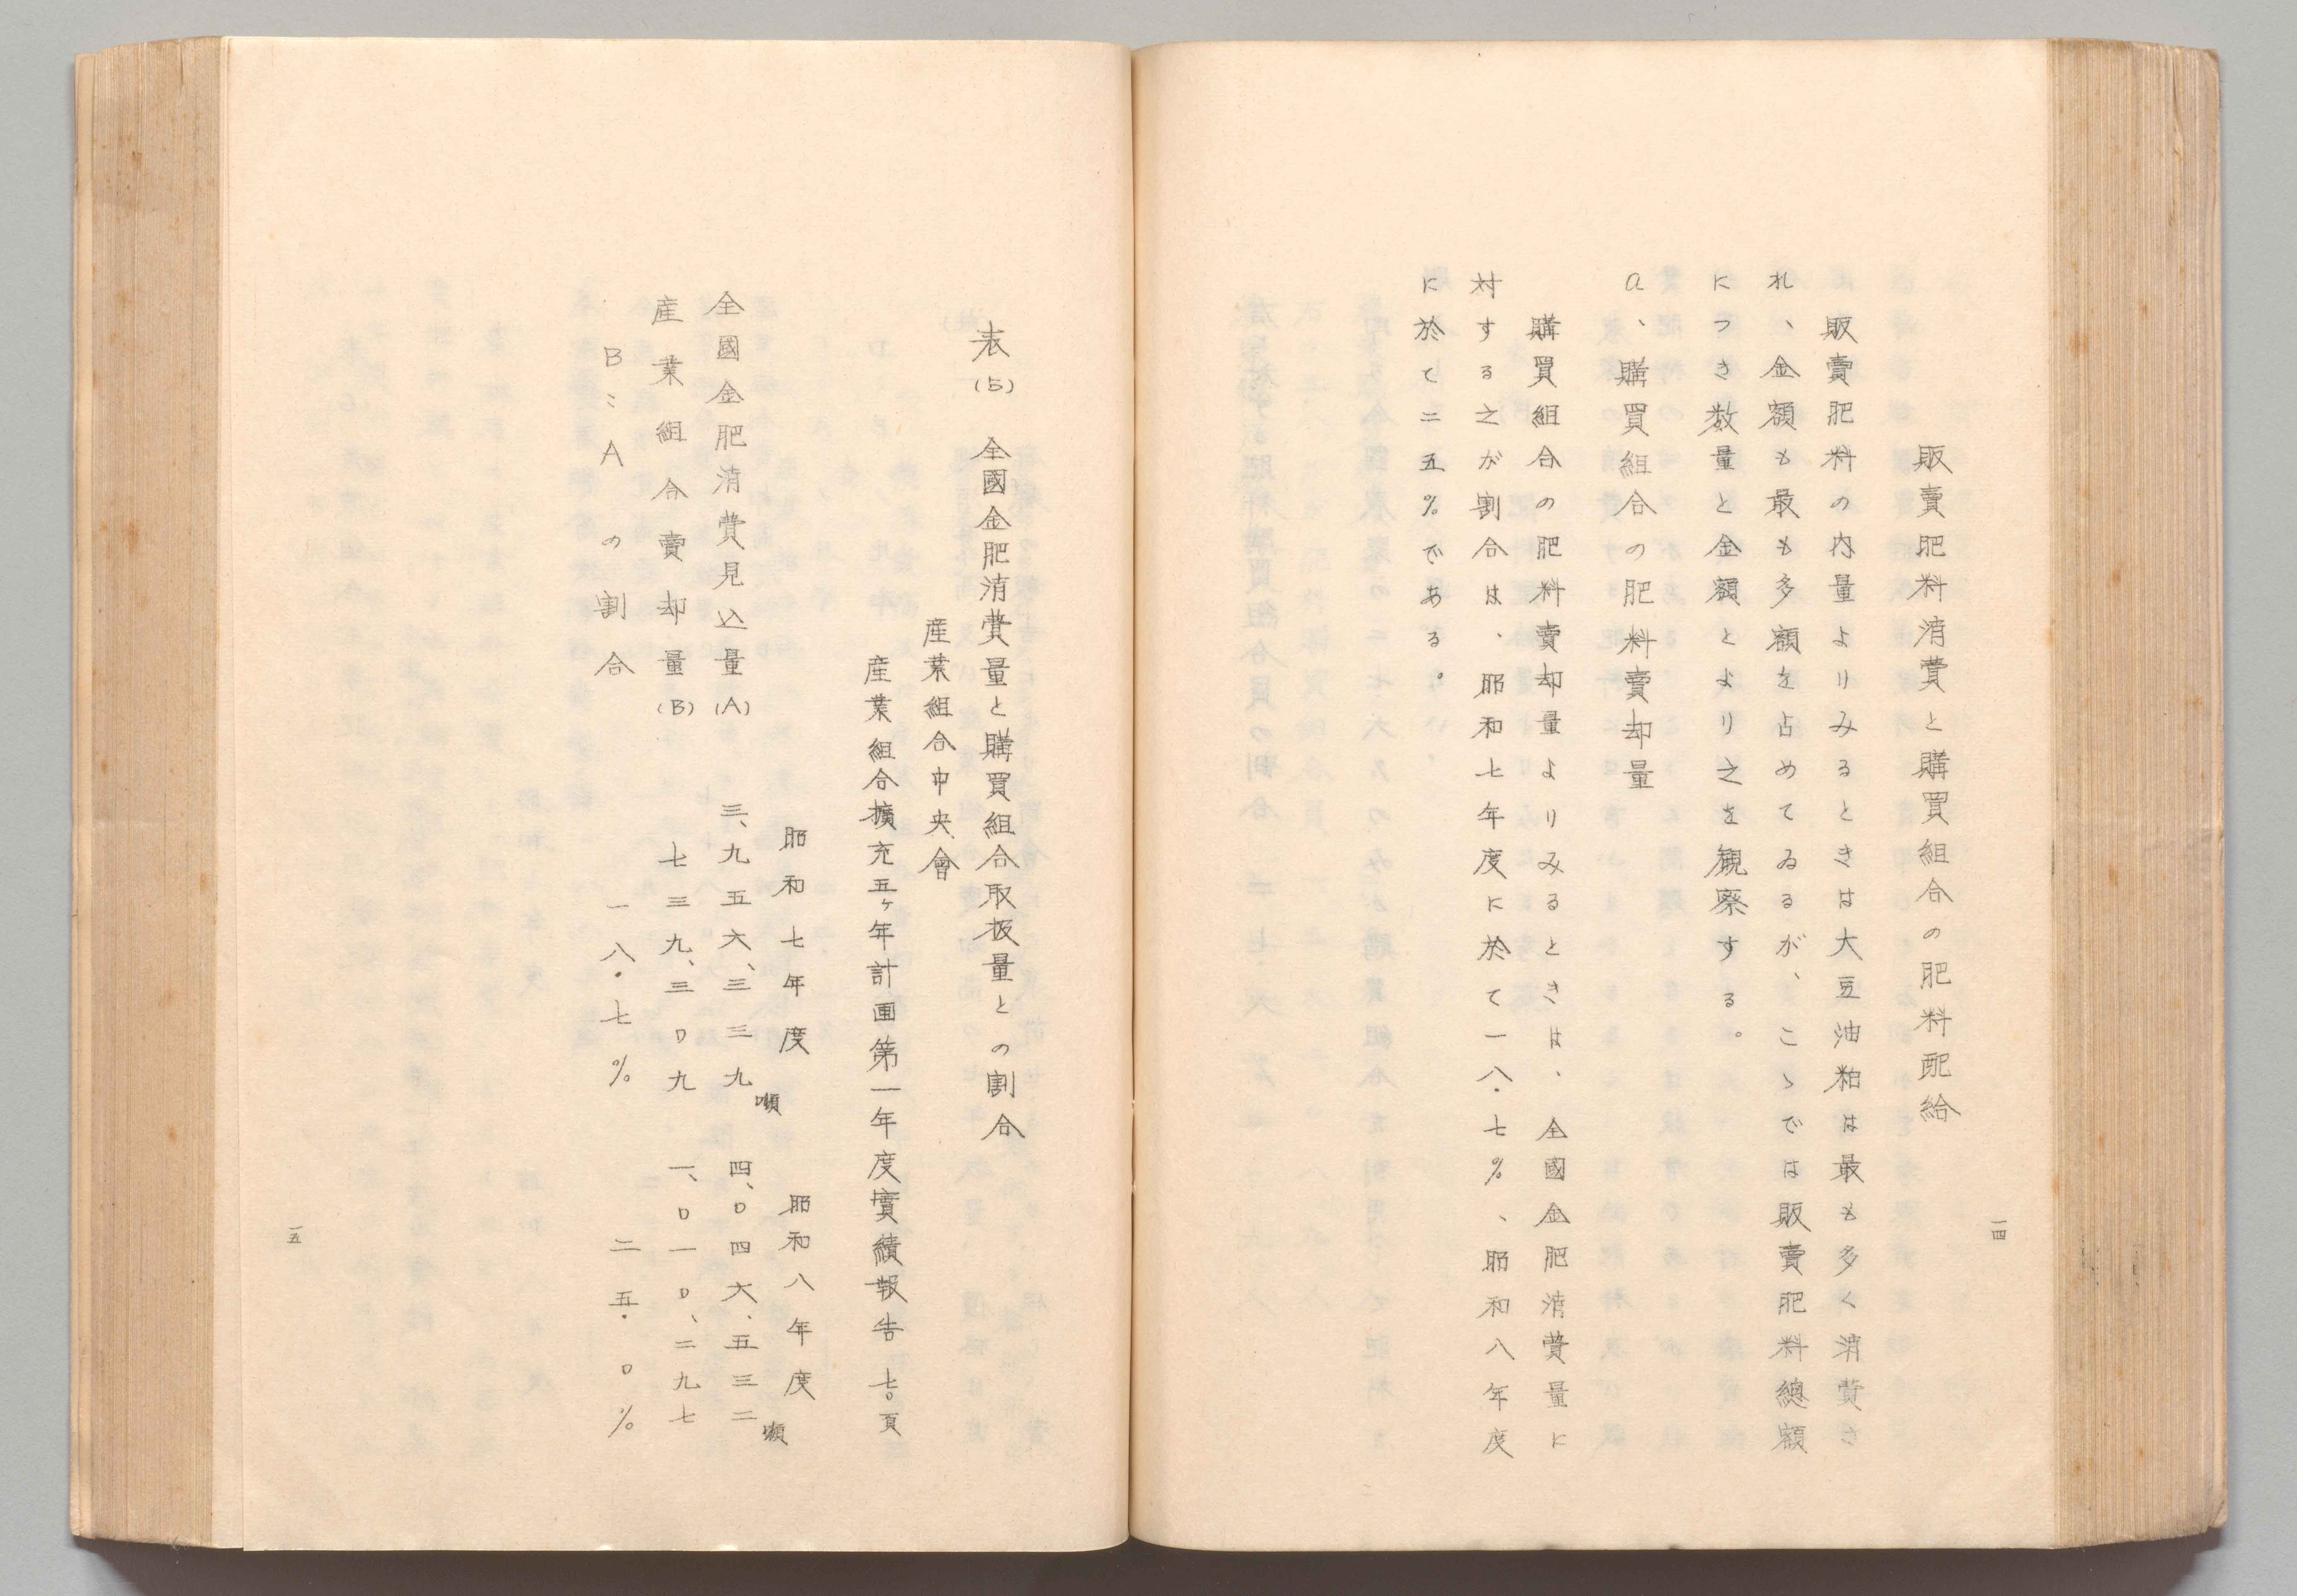 販賣肥料消費と購買組合の肥料配給
販賣肥料の内量よりみるときは大豆油粕は最も多く消費さ
れ、金額も最も多額を占めてゐるが、こゝでは販賣肥料總額
につき数量と金額とより之を観察する。
a、購買組合の肥料賣却量
購買組合の肥料賣却量よりみるときは、全國金肥消費量に
対する之が割合は、昭和七年度に於て一八・七%、昭和八年度
に於て二五%である。
一四
表(5) 全國金肥消費量と購買組合取扱量との割合
産業組合中央會
産業組合擴充五ヶ年計画第一年度實績報告 七〇頁
昭和七年度 昭和八年度
全國金肥消費見込量(A) 三、九五六、三三九噸 四、〇四六、五三二噸
産業組合賣却量(B) 七三九、三〇九 一、〇一〇、二九七
B:Aの割合 一八・七% 二五・〇%
一五